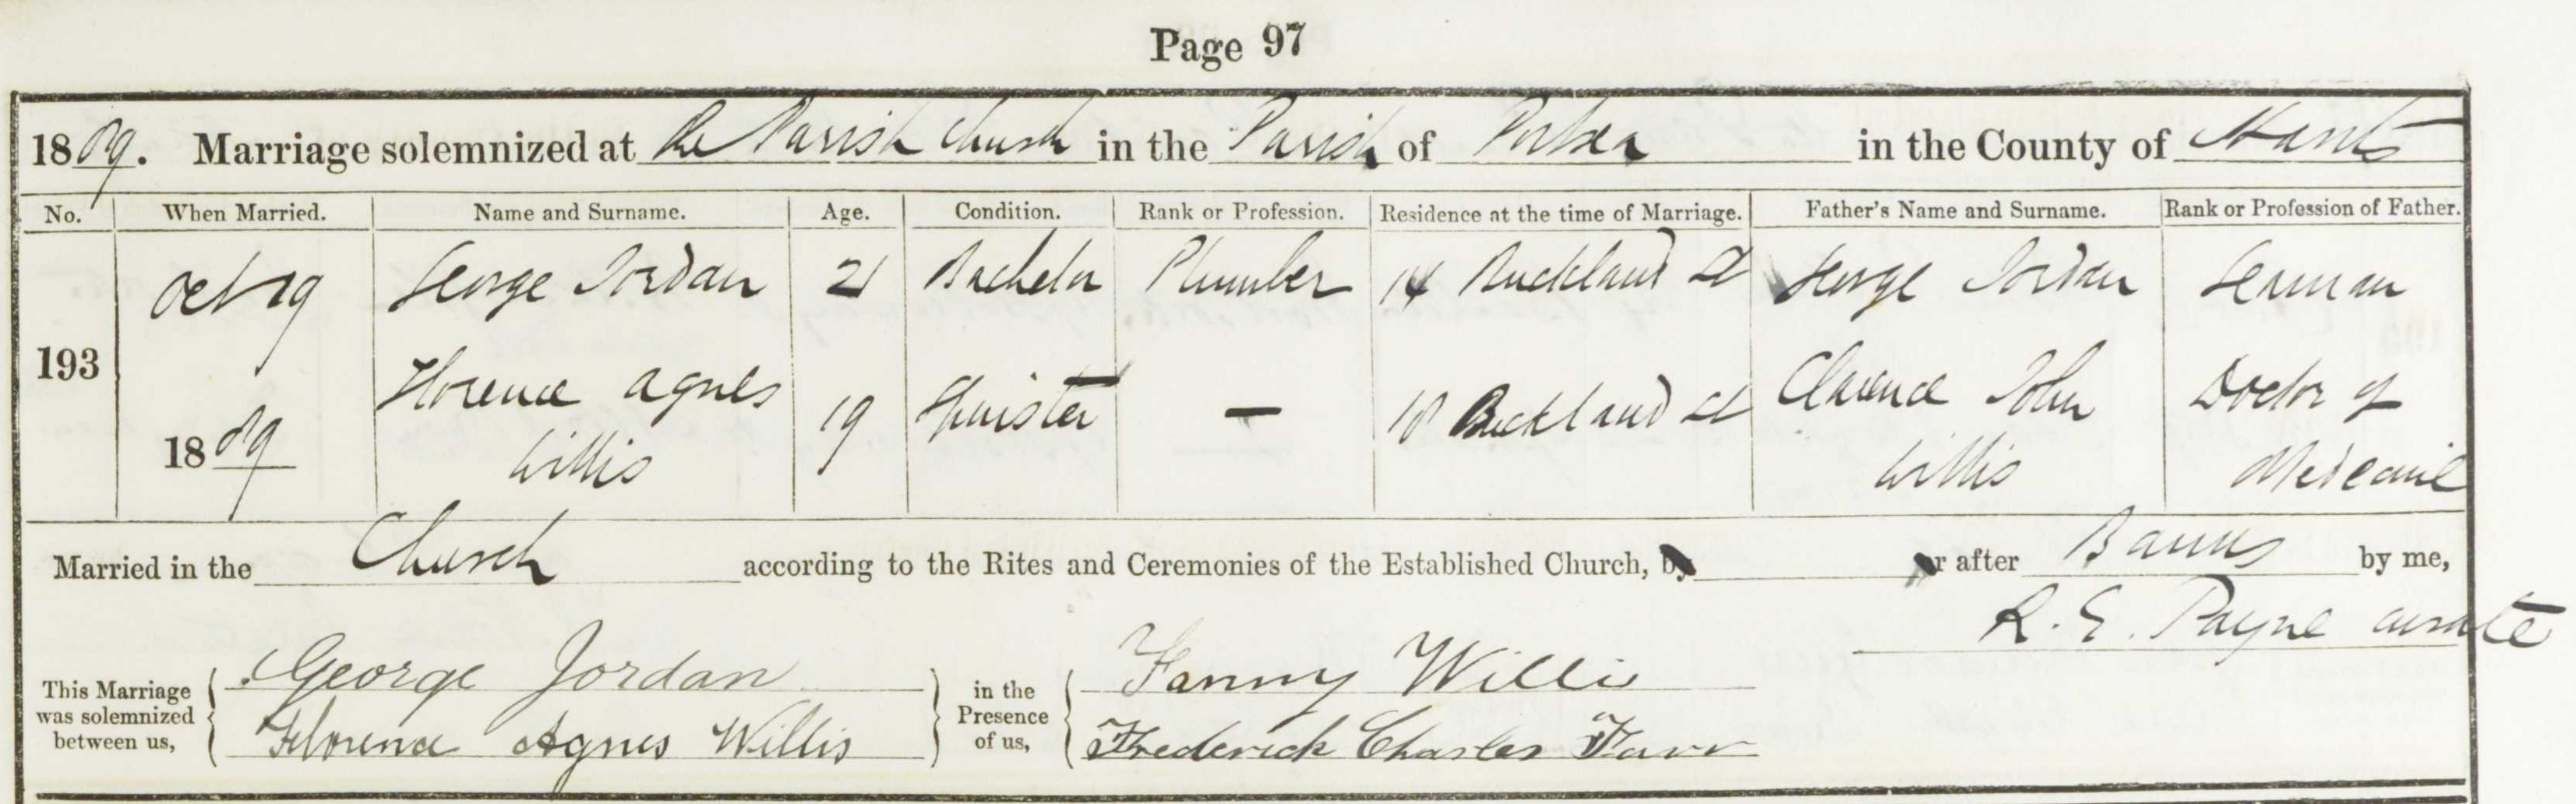 Page 97
1889. Marriage solemnized at the Parish Church in the Parish of Portsea in the County of Hants
No. When Married. Name and Surname. Age. Condition. Rank or Profession. Residence at the time of Marriage. Father's Name and Surname. Rank or Profession of Father.
Oct 19 George Jordan 21 Bachelor Plumber 14 Buckland St George Jordan Seaman
193 1889 Florence Agnes 19 Spinster — 18 Buckland St Clarence John Doctor of
Willis Willis Medecine
Married in the Church according to the Rites and Ceremonies of the Established Church, by or after Banns by me,
R. E. Payne curate
This Marriage was solemnized between us, George Jordan in the Presence of us, Fanny Willis
Florence Agnes Willis Frederick Charles Farr